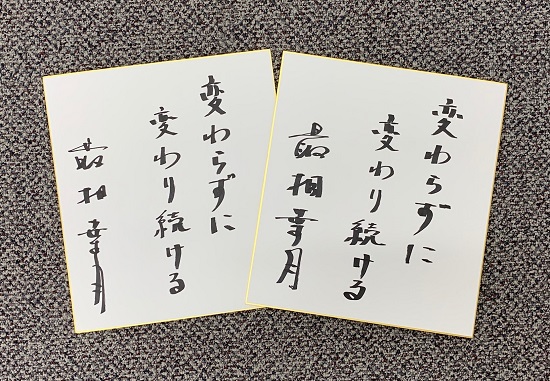 変わらずに
変わり続ける
最相葉月
変わらずに
変わり続ける
最相葉月